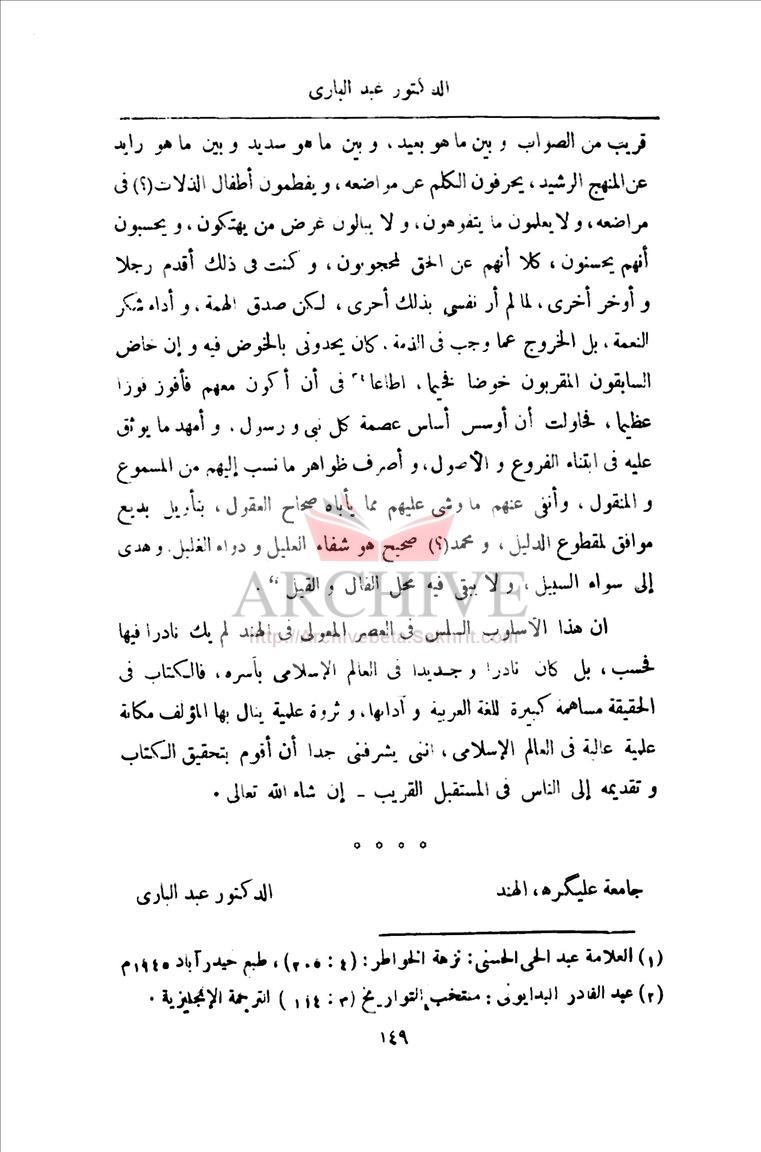 الدكتور عبد البارى
قريب من الصواب و بين ما هو بعيد، و بين ما هو سديد و بين ما هو رايد
عن المنهج الرشيد، يحرفون الكلم عن مراضعه، و يفطمون أطفال الذلات(؟) فى
مراضعه، و لا يعلمون ما يتفوهون، و لا يبالون غرض من يهتكون، و يحسبون
أنهم يحسنون، كلا أنهم عن الحق لمحجوبون، و كنت فى ذلك أقدم رجلا
و أوخر أخرى، لما لم أر نفسى بذلك أحرى، لكن صدق الهمة، و أداء شكر
النعمة، بل الخروج عما وجب فى الذمة، كان يحدونى بالخوض فيه و إن خاض
السابقون المقربون خوضا فخيما، فى أن أكون معهم فأفوز فوزا
عظيما، فحاولت أن أوسس أساس عصمة كل نبى و رسول، و أمهد ما يوثق
عليه فى ابتناء الفروع و الأصول، و أصرف ظواهر ما نسب إليهم من المسموع
و المنقول، وأنفى عنهم ما وشى عليهم مما يأباه صحاح العقول، بتأويل بديع
موافق لمقطوع الدليل، و محمد(؟) صحيح هو شفاء العليل و دواء الغليل و هدى
إلى سواء السبيل، و لا يبقى فيه محل القال و القيل“.
ARCHIVE
http://Archivebeta.Sakhrit.com
ان هذا الأسلوب السلس فى العصر المغولى فى الهند لم يك نادرا فيها
فحسب، بل كان نادرا و جديدا فى العالم الإسلامى بأسره، فالكتاب فى
الحقيقة مساهمة كبيرة للغة العربية و آدابها، و ثروة علمية ينال بها المؤلف مكانة
علمية عالية فى العالم الإسلامى، اننى يشرفنى جدا أن أقوم بتحقيق الكتاب
و تقديمه إلى الناس فى المستقبل القريب ـ إن شاء الله تعالى.
° ° ° °
جامعة عليگره، الهند الدكتور عبد البارى
(١) العلامة عبد الحى الحسنى: نزهة الخواطر: (٤ : ٢٠٥)، طبع حيدرآباد ١٩٤٥م
(٢) عبد القادر البدايونى: منتخب التواريخ (٣: ١١٤) الترجمة الإنجليزية.
١٤٩